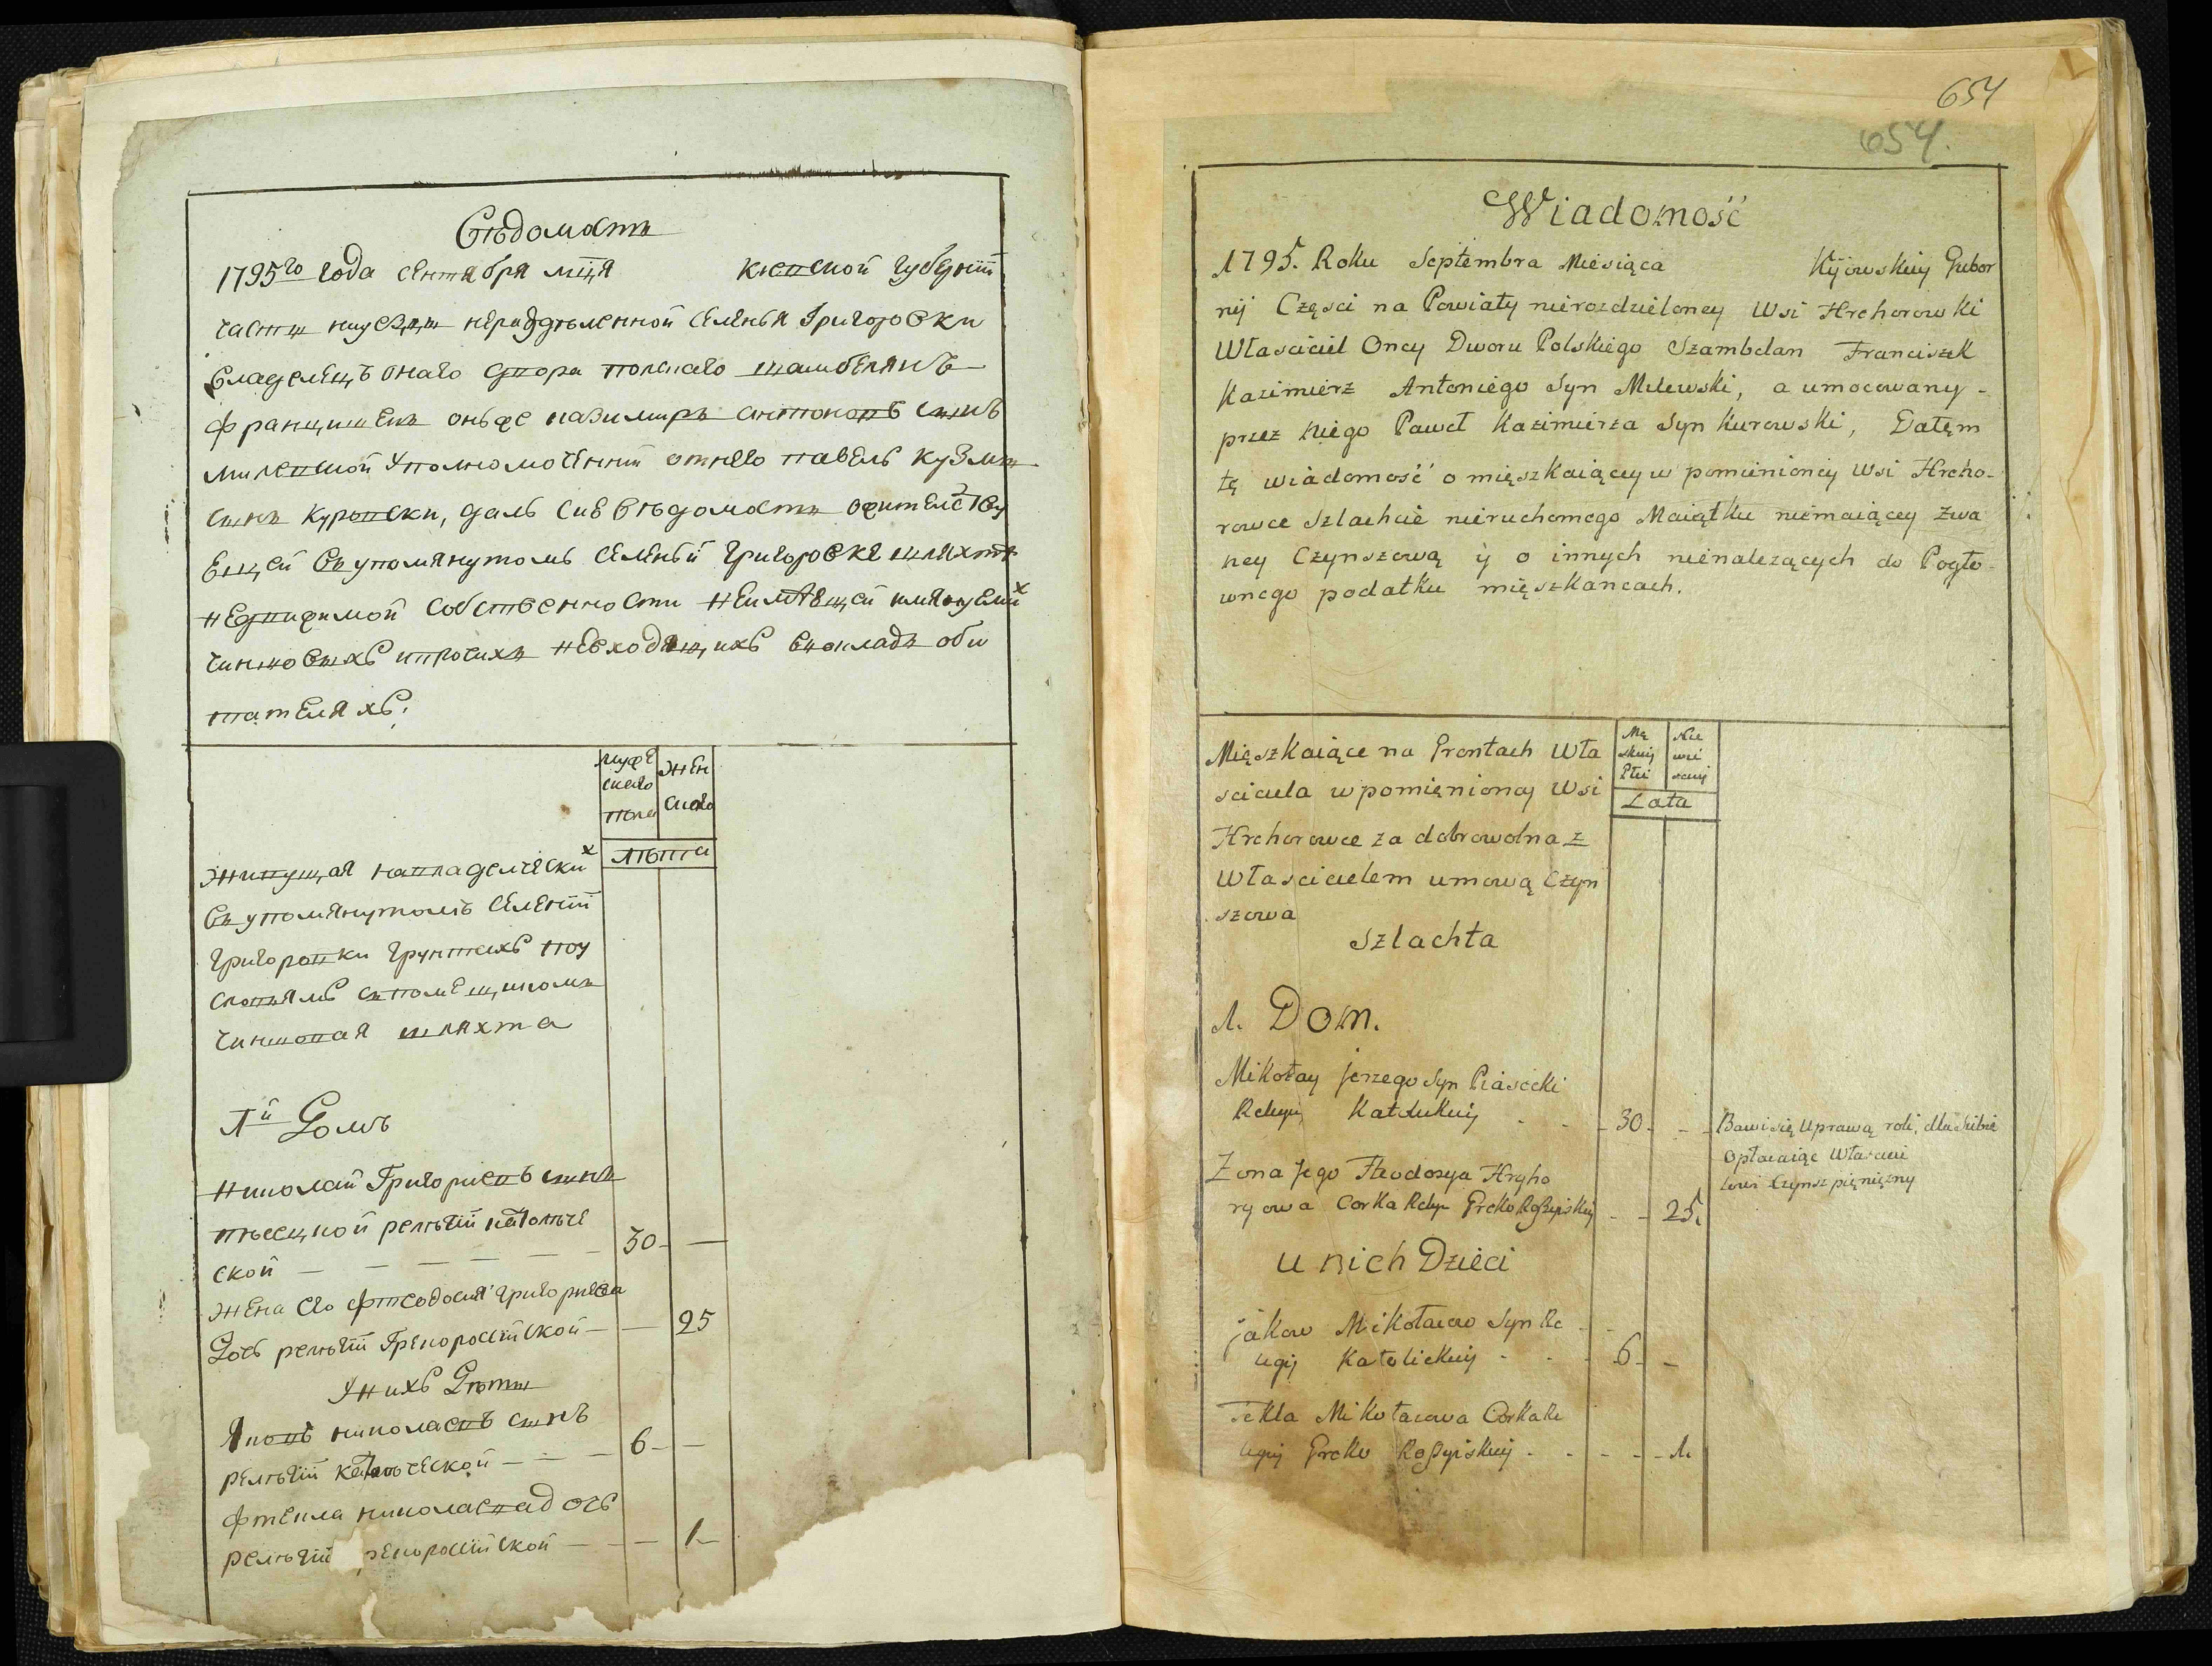 Вѣдомость
1795го года сентября мⷭ҇ца Киевской губернiи
части на уезды неразделенной Селенья Григоровки
владелецъ онаго двора полскаго шамбелянъ
францишекъ онъ же казимиръ антоновъ сынъ
милевской уполномоченнiй отнего павелъ
сынъ куровски, далъ сие ведомость о жителству
ющей въ упомянутомъ селеньи григоровке шляхте
недвижимой собственности неимеющей имянуемих
чиншовыхъ ипротихъ невходящихъ въокладъ оби
тателяхъ:
муже скаго пола
жен скаго
лѣта
живущая навладелчески х
въупомянутомъ селенiи
григоровки грунтахъ поу
словиямъ съпомещикомъ
чиншовая шляхта
1й Домъ
николай Григориевъ сынъ
пясецкой релѣгiи католѣче
ской — — — — 30 —
жена его фтеодосия григориева
Дочь релѣгiи Грекоросiйской — — 25
Унихъ Дѣти
Яковъ николаевъ сынъ
релѣгiи католѣческой — — — 6 —
фтекла николаева дочь
релѣгiи рекоросiйской — — — 1
654
654.
Wiadomość
1795. Roku Septembra Miesiąca Kijowskiey Gubor
nij Części na Powiaty nierozdzieloney Wsi Hrehorowki
Własciciel Oney Dworu Polskiego Szambelan Franciszek
Kazimierz Antoniego Syn Milewski, a umocowany -
przez niego Paweł Kazimierza Syn Kurowski, Datęm
tę wiadomość o mięszkaiącey w pomienioney Wsi Hreho-
rowce Szlachcie nieruchomego Maiątku niemaiącey zwa
ney Czynszową ÿ o innych nienalezących do Pogło-
wnego podatku mięszkancach.
Mięszkaiące na Grontach Wła
sciciela w pomięnioney Wsi
Hrehorowce za dobrowolna z
Własciciełem umową Czyn
szowa
Mę skiey Płci
Nie wie sciey
Lata
Szlachta
1. Dom.
Mikołay Jerzego Syn Piasecki
Religij Katolickiey - - 30 - - Bawi się Uprawą roli, dla siebie
opłacaiąc Własci
lowi Czynsz pięnięzny
Zona Jego Fteodozya Hryho
ryowa Corka Relig Greko Roßyiskiey - - 25.
U nich Dzieci
Jakow Mikołaiow Syn Re
ligij Katolickiey - - 6 - -
Tekla Mikołaiowa Corka Re
ligij Greko Roßyiskiey - - - - 1.